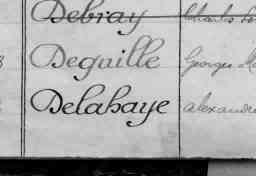 Debray Charles
Degaille Georges
Delahaye Alexandre